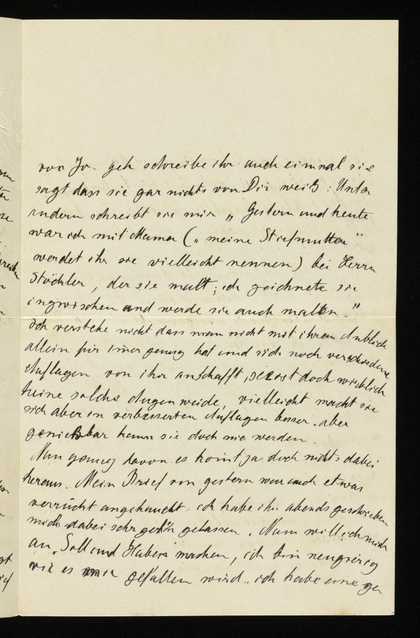 von Jo. geh schreibe ihr auch einmal sie
sagt dass sie gar nichts von Dir weiß: Unter
andern schreibt sie mir „Gestern und heute
war ich mit Mama („meine Stiefmutter"
werdet ihr sie vielleicht nennen) bei Herrn
der sie malt; ich zeichnete sie
inzwischen und werde sie auch malen."
Ich verstehe nicht dass man nicht mit ihrem Anblick
allein für immer genug hat und sich noch verschiedene
Auflagen von ihr anschafft, es ist doch wirklich
keine solche Augenweide, vielleicht macht sie
sich aber in verbesserten Auflagen besser. aber
genießbar kann sie doch nie werden.
Nun genug davon es kommt ja doch nichts dabei
heraus. Mein Brief von gestern war auch etwas
verrückt angehaucht. ich habe ihn abends geschrieben
mich dabei sehr gehen gelassen. Nun will ich mich
an „Soll und Haben" machen, ich bin neugierig
wie es mir gefallen wird. ich habe eine gan